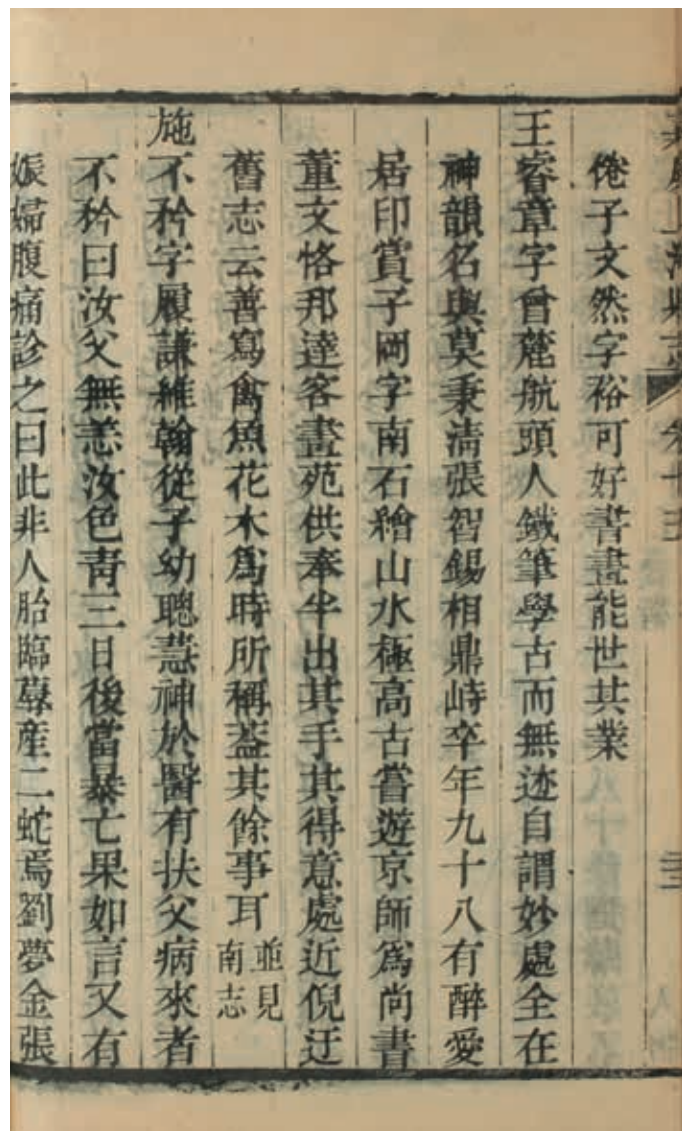 倦子文然字裕可好書畫能世其業
王睿章字曾麓航頭人鐵筆學古而無迹自謂妙處全在
神韻名與莫秉清張智錫相鼎峙卒年九十八有醉愛
居印賞子岡字南石繪山水極高古嘗遊京師為尚書
董文恪邦達客畫苑供奉半出其手其得意處近倪迂
舊志云善寫禽魚花木為時所稱葢其餘事耳並見南志
施不矜字履謙維翰從子幼聰慧神於醫有扶父病來者
不矜曰汝父無恙汝色靑三日後當暴亡果如言又有
娠婦腹痛診之曰此非人胎臨蓐產二蛇焉劉夢金張